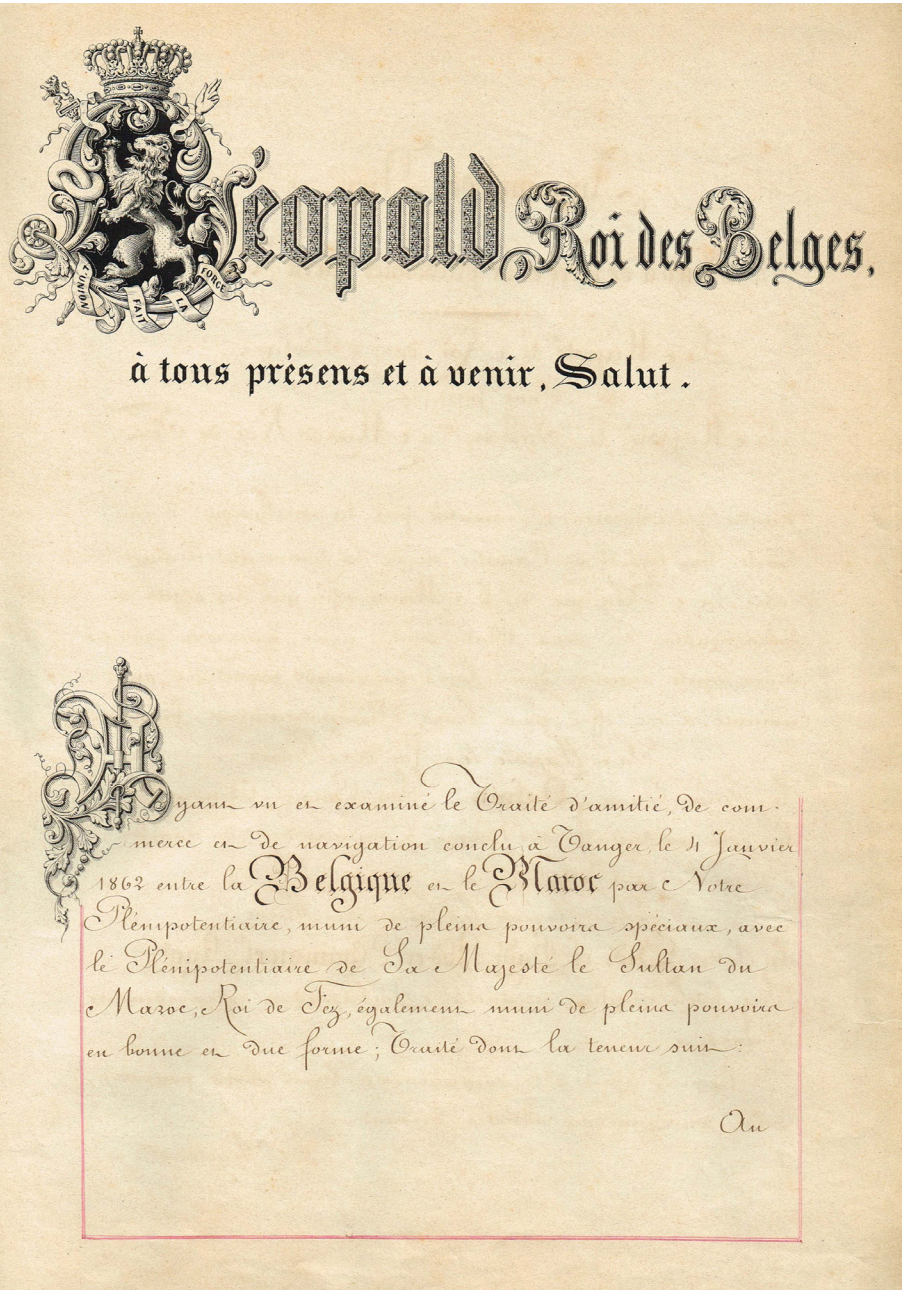 Léopold, Roi des Belges,
L'UNION FAIT LA FORCE
à tous présens et à venir, Salut.
Ayant vu et examiné le Traité d'amitié, de com-
merce et de navigation conclu, à Tanger, le 4 Janvier
1862 entre la Belgique et le Maroc par Notre
Plénipotentiaire, muni de pleins pouvoirs spéciaux, avec
le Plénipotentiaire de Sa Majesté le Sultan du
Maroc, Roi de Fez, également muni de pleins pouvoirs
en bonne et due forme; Traité dont la teneur suit:
Au